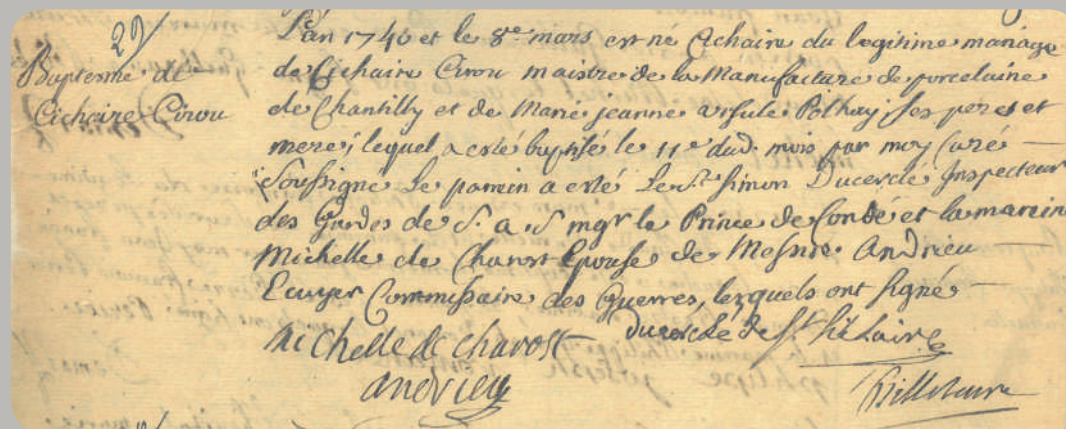 29
Baptesme de
Cichaire Cirou
L'an 1740 et le 8e mars est né Cichaire du legitime mariage
de Cichaire Cirou maistre de la Manufacture de porcelaine
de Chantilly et de Marie jeanne ursule ses pere et
mere; lequel a esté baptisé le 11e dud. mois par moy Curé
Soussigné Le parrain a esté Le Sr. Simon Ducercle Inspecteur
des Gardes de S. a. S mgr le Prince de Condé et la mareine
Michelle de Charost Epouse de Andrieu
Ecuyer Commissaire des Guerres, lesquels ont signé
Michelle de charost ducercle de St hilaire
andrieu